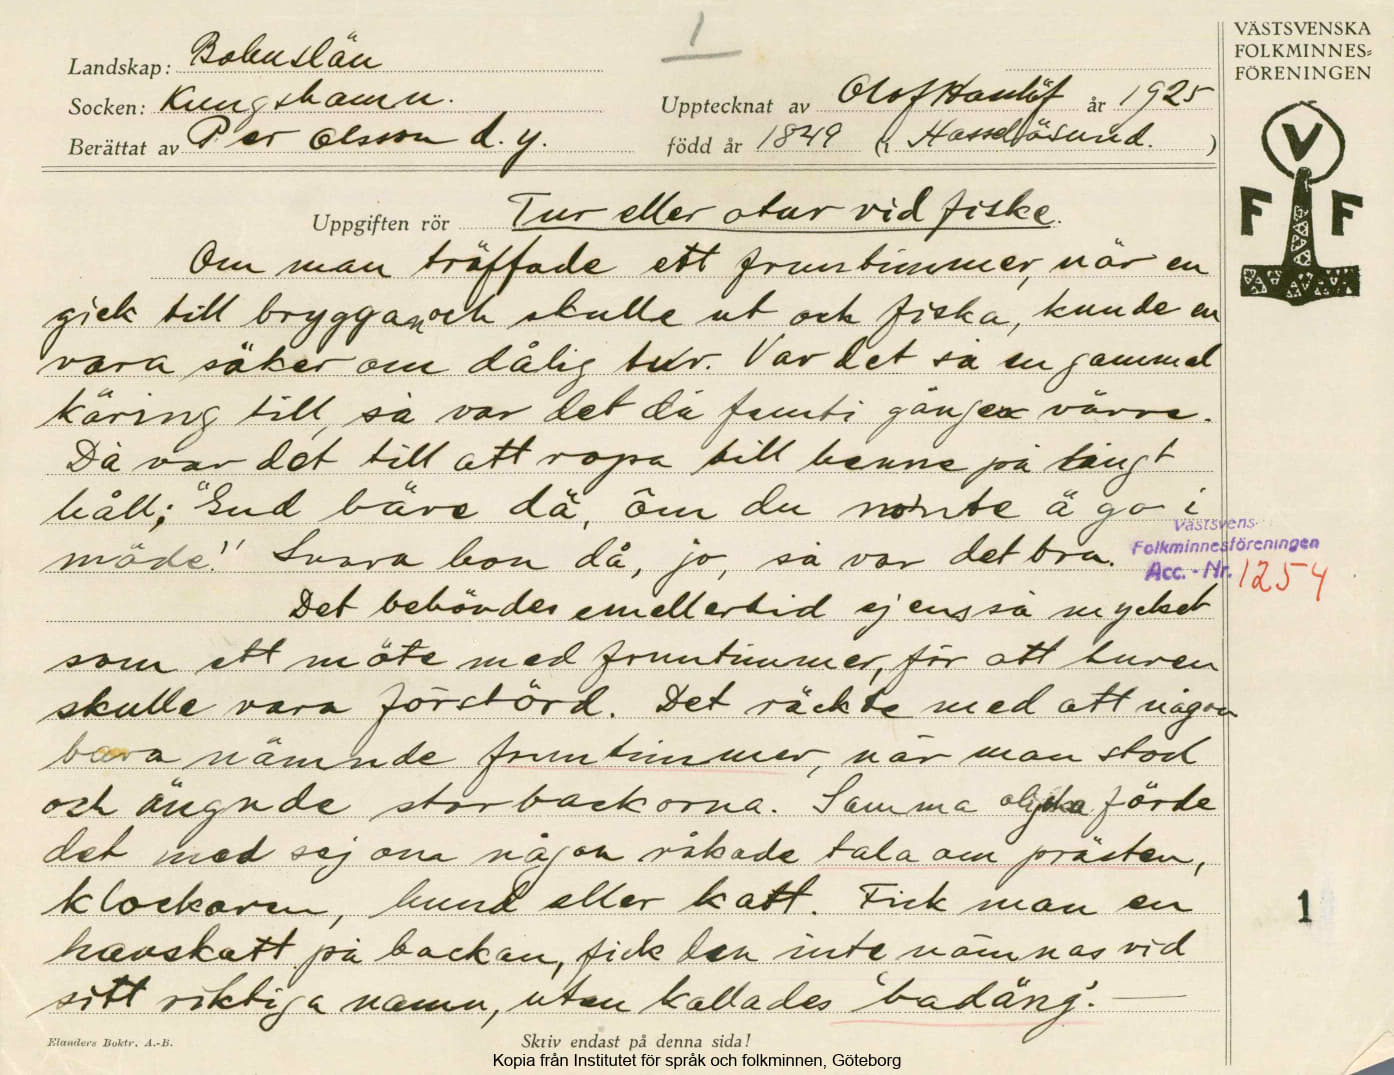 1
VÄSTSVENSKA
FOLKMINNES-
FÖRENINGEN
Landskap: Bohuslän
Socken: Kungshamn.
Upptecknat av Olof Hasslöf år 1925
Berättat av Per Olsson d.y.
född år 1849 (i Hasselösund.)
V
F F
Uppgiften rör Tur eller otur vid fiske.
Om man träffade ett fruntimmer, när en
gick till bryggan och skulle ut och fiska, kunde en
vara säker om dålig tur. Var det så en gammal
käring till, så var det då femti gånger värre.
Då var det till att ropa till henne på långt
håll; "Gud bäre dä, öm du nonte ä go i
möde!" Svara hon då, jo, så var det bra.
Västsvens-
Folkminnesföreningen
Acc. - Nr. 1254
Det behövdes emellertid ej ens så mycket
som ett möte med fruntimmer, för att turen
skulle vara förstörd. Det räckte med att någon
bara nämnde fruntimmer, när man stod
och ängnde storbackorna. Samma olycka förde
det med sej om någon råkade tala om prästen,
klockaren, hund eller katt. Fick man en
1
havskatt på backan, fick den inte nämnas vid
sitt riktiga namn, uten kallades "badäng". —
Elanders Boktr. A.-B.
Skriv endast på denna sida!
Kopia från Institutet för språk och folkminnen, Göteborg